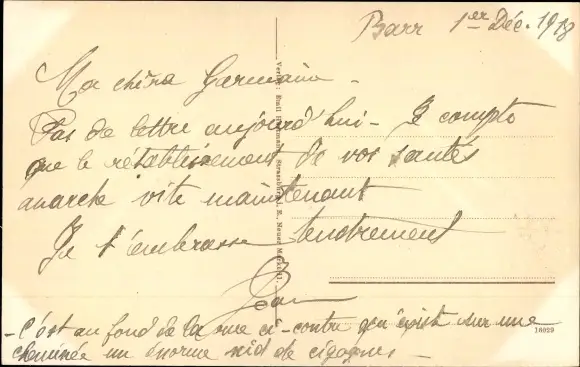 Barr 1er Déc. 1918
Ma chère Germaine -
Pas de lettre aujourd'hui - Je compte
que le rétablissement de vos santés
marche vite maintenant
Je t'embrasse tendrement
Jean
- C'est au fond de la rue ci-contre qu'existe sur une
cheminée un énorme nid de cigognes -
Verlag: Emil Strassburg i. E., Neuer Markt
16029